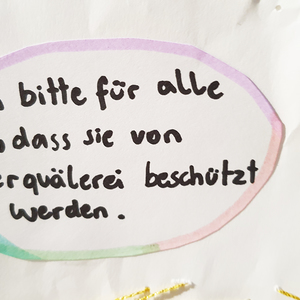 bitte für alle
dass sie von
erquälerei beschützt
werden.